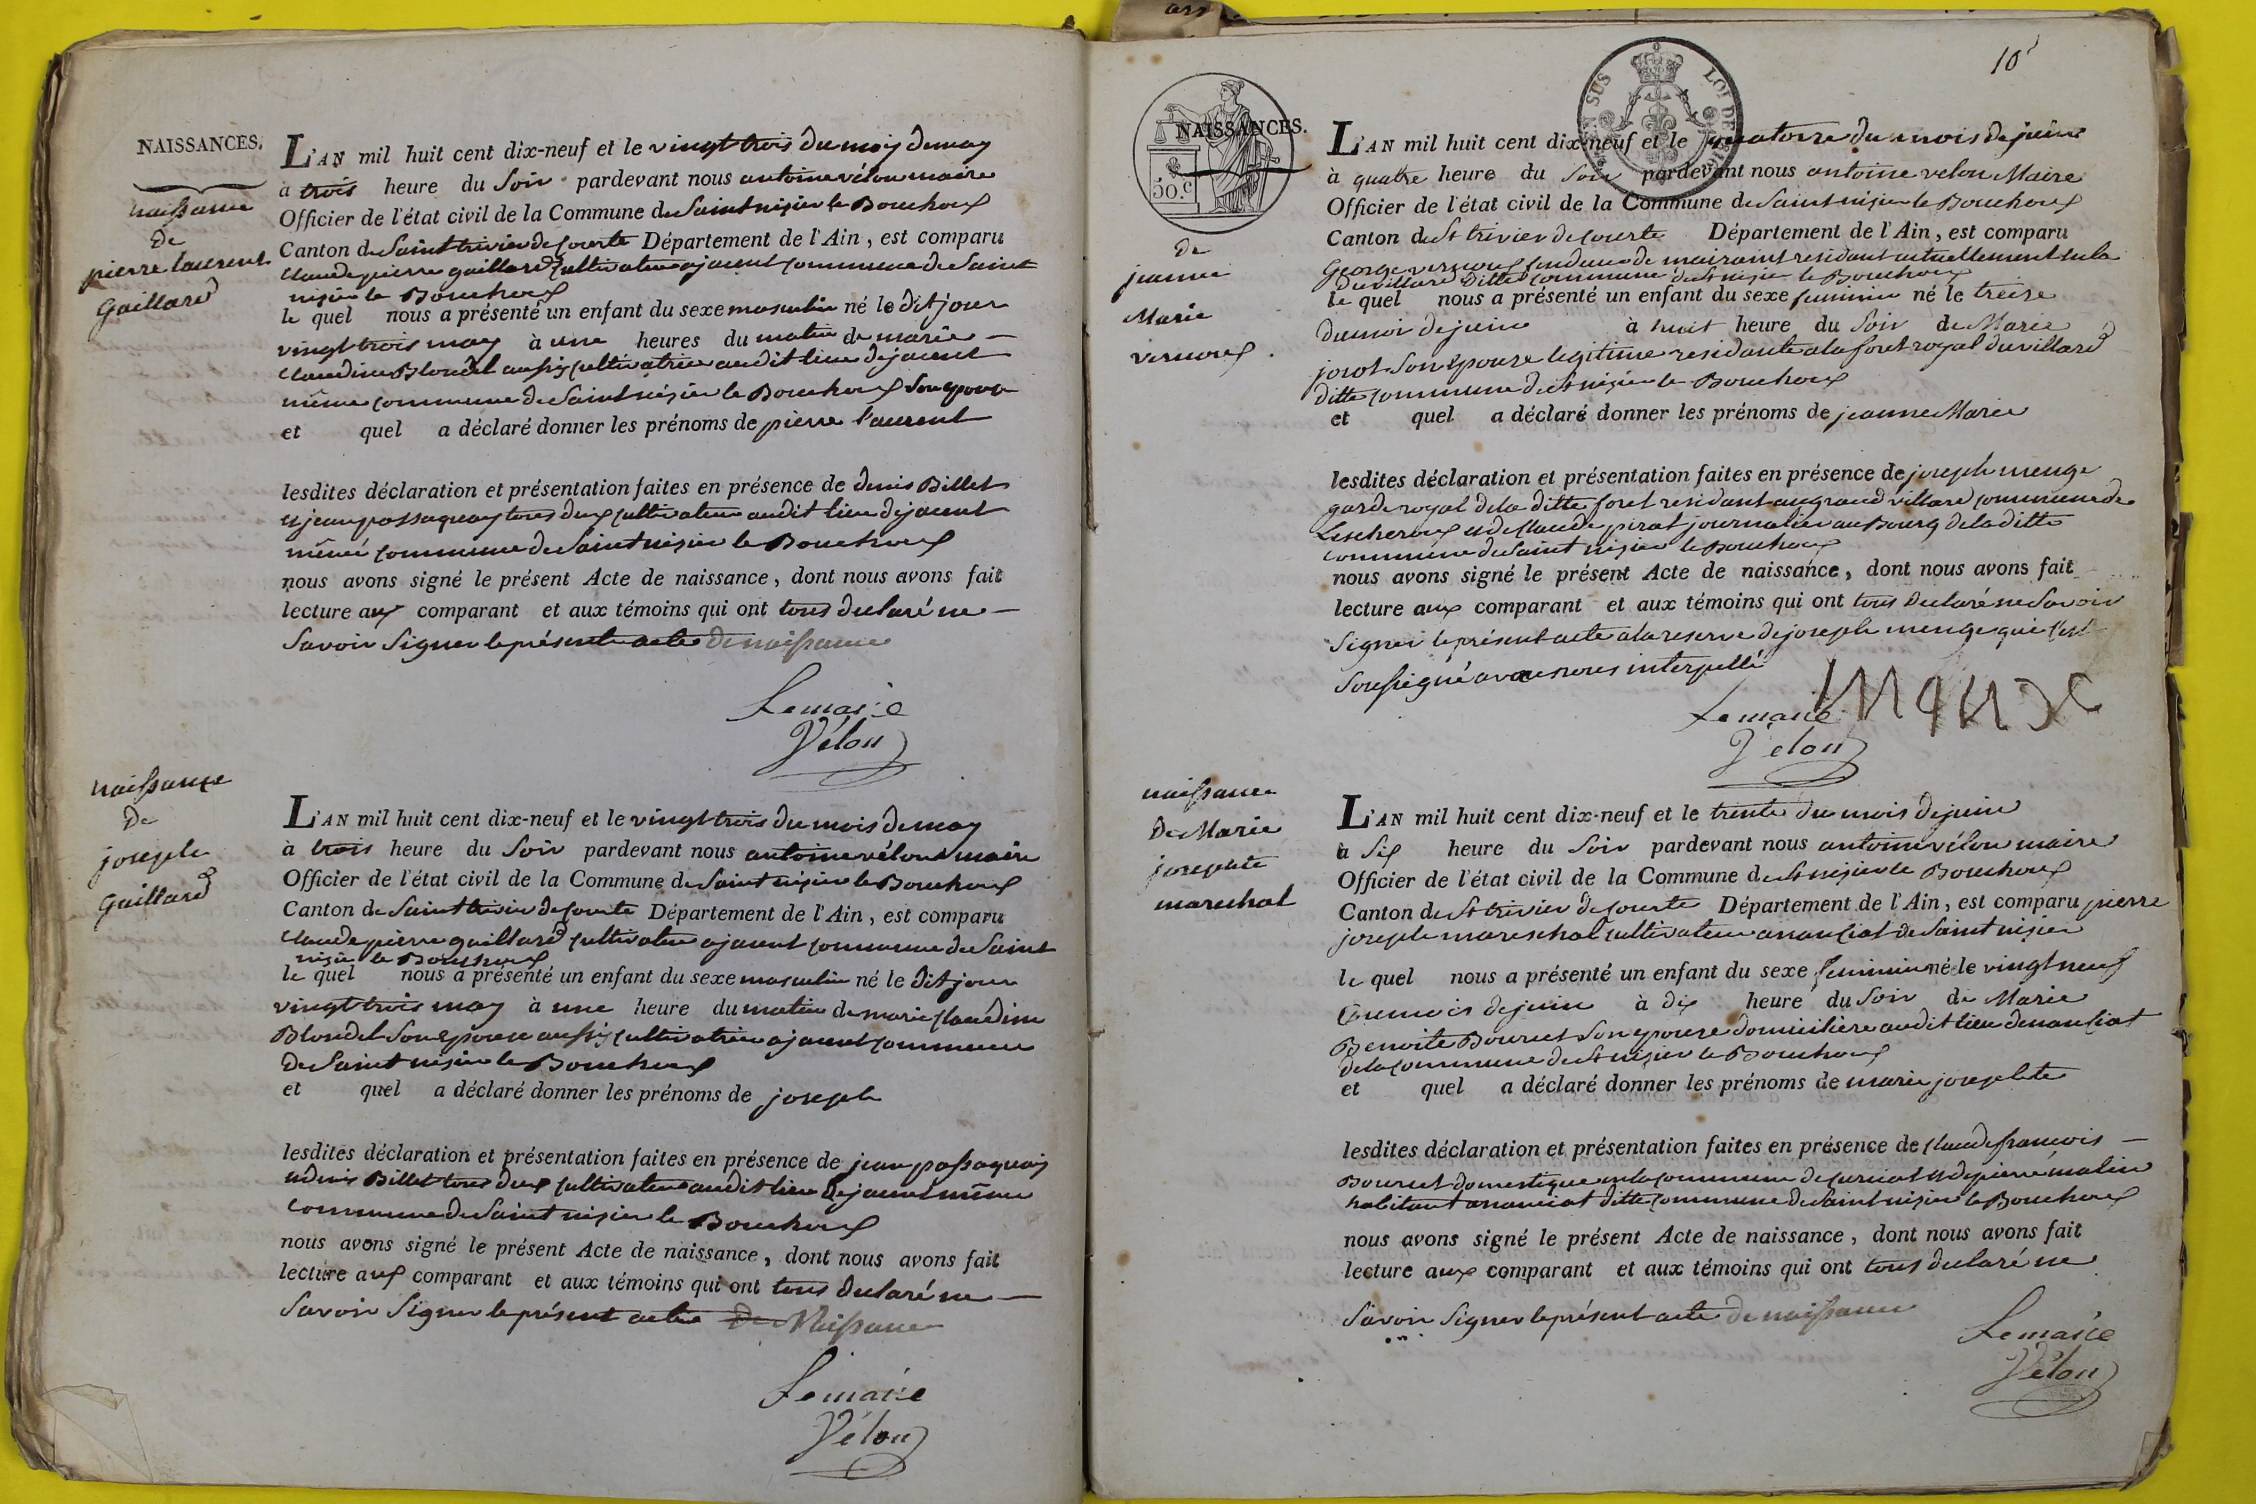 NAISSANCES.
naissance
de
pierre laurent
Gaillard
L'AN mil huit cent dix-neuf et le vingt trois du moy de may
à trois heure du soir pardevant nous antoine vélon maire
Officier de l'état civil de la Commune de Saint nisier le Bouchoux
Canton de Saint trivier de Courte Département de l'Ain, est comparu
Claude pierre gaillard Cultivateur a jacent Commune de Saint
nisier le Bouchoux
le quel nous a présenté un enfant du sexe masculin né le dit jour
vingt trois may à une heures du matin de marie
Claudine Blondel aussy Cultivatrice audit lieu de jacent
même Commune de Saint nisier le Bouchoux son epouse
et quel a déclaré donner les prénoms de pierre laurent
lesdites déclaration et présentation faites en présence de denis Billet
et jean passaquay tous deux Cultivateur audit lieu de jacent
même Commune de Saint nisier le Bouchoux
nous avons signé le présent Acte de naissance, dont nous avons fait
lecture aux comparant et aux témoins qui ont tous declaré ne
Savoir Signer le présent acte de naissance
Le maire
Vélon
naissance
de
joseph
Gaillard
L'AN mil huit cent dix-neuf et le vingt trois du mois de may
à trois heure du Soir pardevant nous antoine vélon maire
Officier de l'état civil de la Commune de Saint nisier le Bouchoux
Canton de Saint trivier de Courte Département de l'Ain, est comparu
Claude pierre gaillard Cultivateur a jacent Commune de Saint
nisier le Bouchoux
le quel nous a présenté un enfant du sexe masculin né le dit jour
vingt trois may à une heure du matin de marie Claudine
Blondel Son Epouse aussy Cultivatrice a jacent Commune
de Saint nisier le Bouchoux
et quel a déclaré donner les prénoms de joseph
lesdites déclaration et présentation faites en présence de jean passaquay
et denis Billet tous deux Cultivateur audit lieu de jacent même
Commune de Saint nisier le Bouchoux
nous avons signé le présent Acte de naissance, dont nous avons fait
lecture aux comparant et aux témoins qui ont tous declaré ne
Savoir Signer le présent acte de Naissance
Le maire
Vélon
10
SUS LOI DE
50.c
NAISSANCES.
de
jeanne
Marie
vernoux
L'AN mil huit cent dix-neuf et le quatorze du mois de juin
à quatre heure du Soir pardevant nous antoine velon Maire
Officier de l'état civil de la Commune de Saint nisier le Bouchoux
Canton de St trivier de courte Département de l'Ain, est comparu
George vernoux residant actuellement
du villard Ditte Commune de St nisier le Bouchoux
le quel nous a présenté un enfant du sexe feminin né le treize
du moi de juin à huit heure du Soir de Marie
Son Epouse legitime residante a la foret royal du villard
ditte Commune de St nisier le Bouchoux
et quel a déclaré donner les prénoms de jeanne Marie
lesdites déclaration et présentation faites en présence de joseph menge
garde royal de la ditte foret residant au grand villard Commune de
Lescheroux et de Claude pirat journalier au Bourg de la ditte
Commune de Saint nisier le Bouchoux
nous avons signé le présent Acte de naissance, dont nous avons fait
lecture aux comparant et aux témoins qui ont tous declaré ne Savoir
Signer le présent acte a la reserve de joseph menge qui s'est
Soussigné avec nous interpellé
Le maire
Vélon
naissance
De Marie
josephte
mareschal
L'AN mil huit cent dix-neuf et le trente du mois de juin
à Six heure du Soir pardevant nous antoine vélon maire
Officier de l'état civil de la Commune de St nisier le Bouchoux
Canton de St trivier de courte Département de l'Ain, est comparu pierre
joseph mareschal Cultivateur a nanciat de Saint nisier
le quel nous a présenté un enfant du sexe feminin né le vingt neuf
du mois de juin à dix heure du Soir de Marie
Benoite Bourcet Son epouse domiciliere audit lieu de nanciat
de la Commune de St nisier le Bouchoux
et quel a déclaré donner les prénoms de marie josephte
lesdites déclaration et présentation faites en présence de Claude françois
Bourcet domestique en la Commune de Curciat et de pierre matin
habitant a nanciat ditte Commune de Saint nisier le Bouchoux
nous avons signé le présent Acte de naissance, dont nous avons fait
lecture aux comparant et aux témoins qui ont tous declaré ne
Savoir Signer le présent acte de naissance
Le maire
Vélon